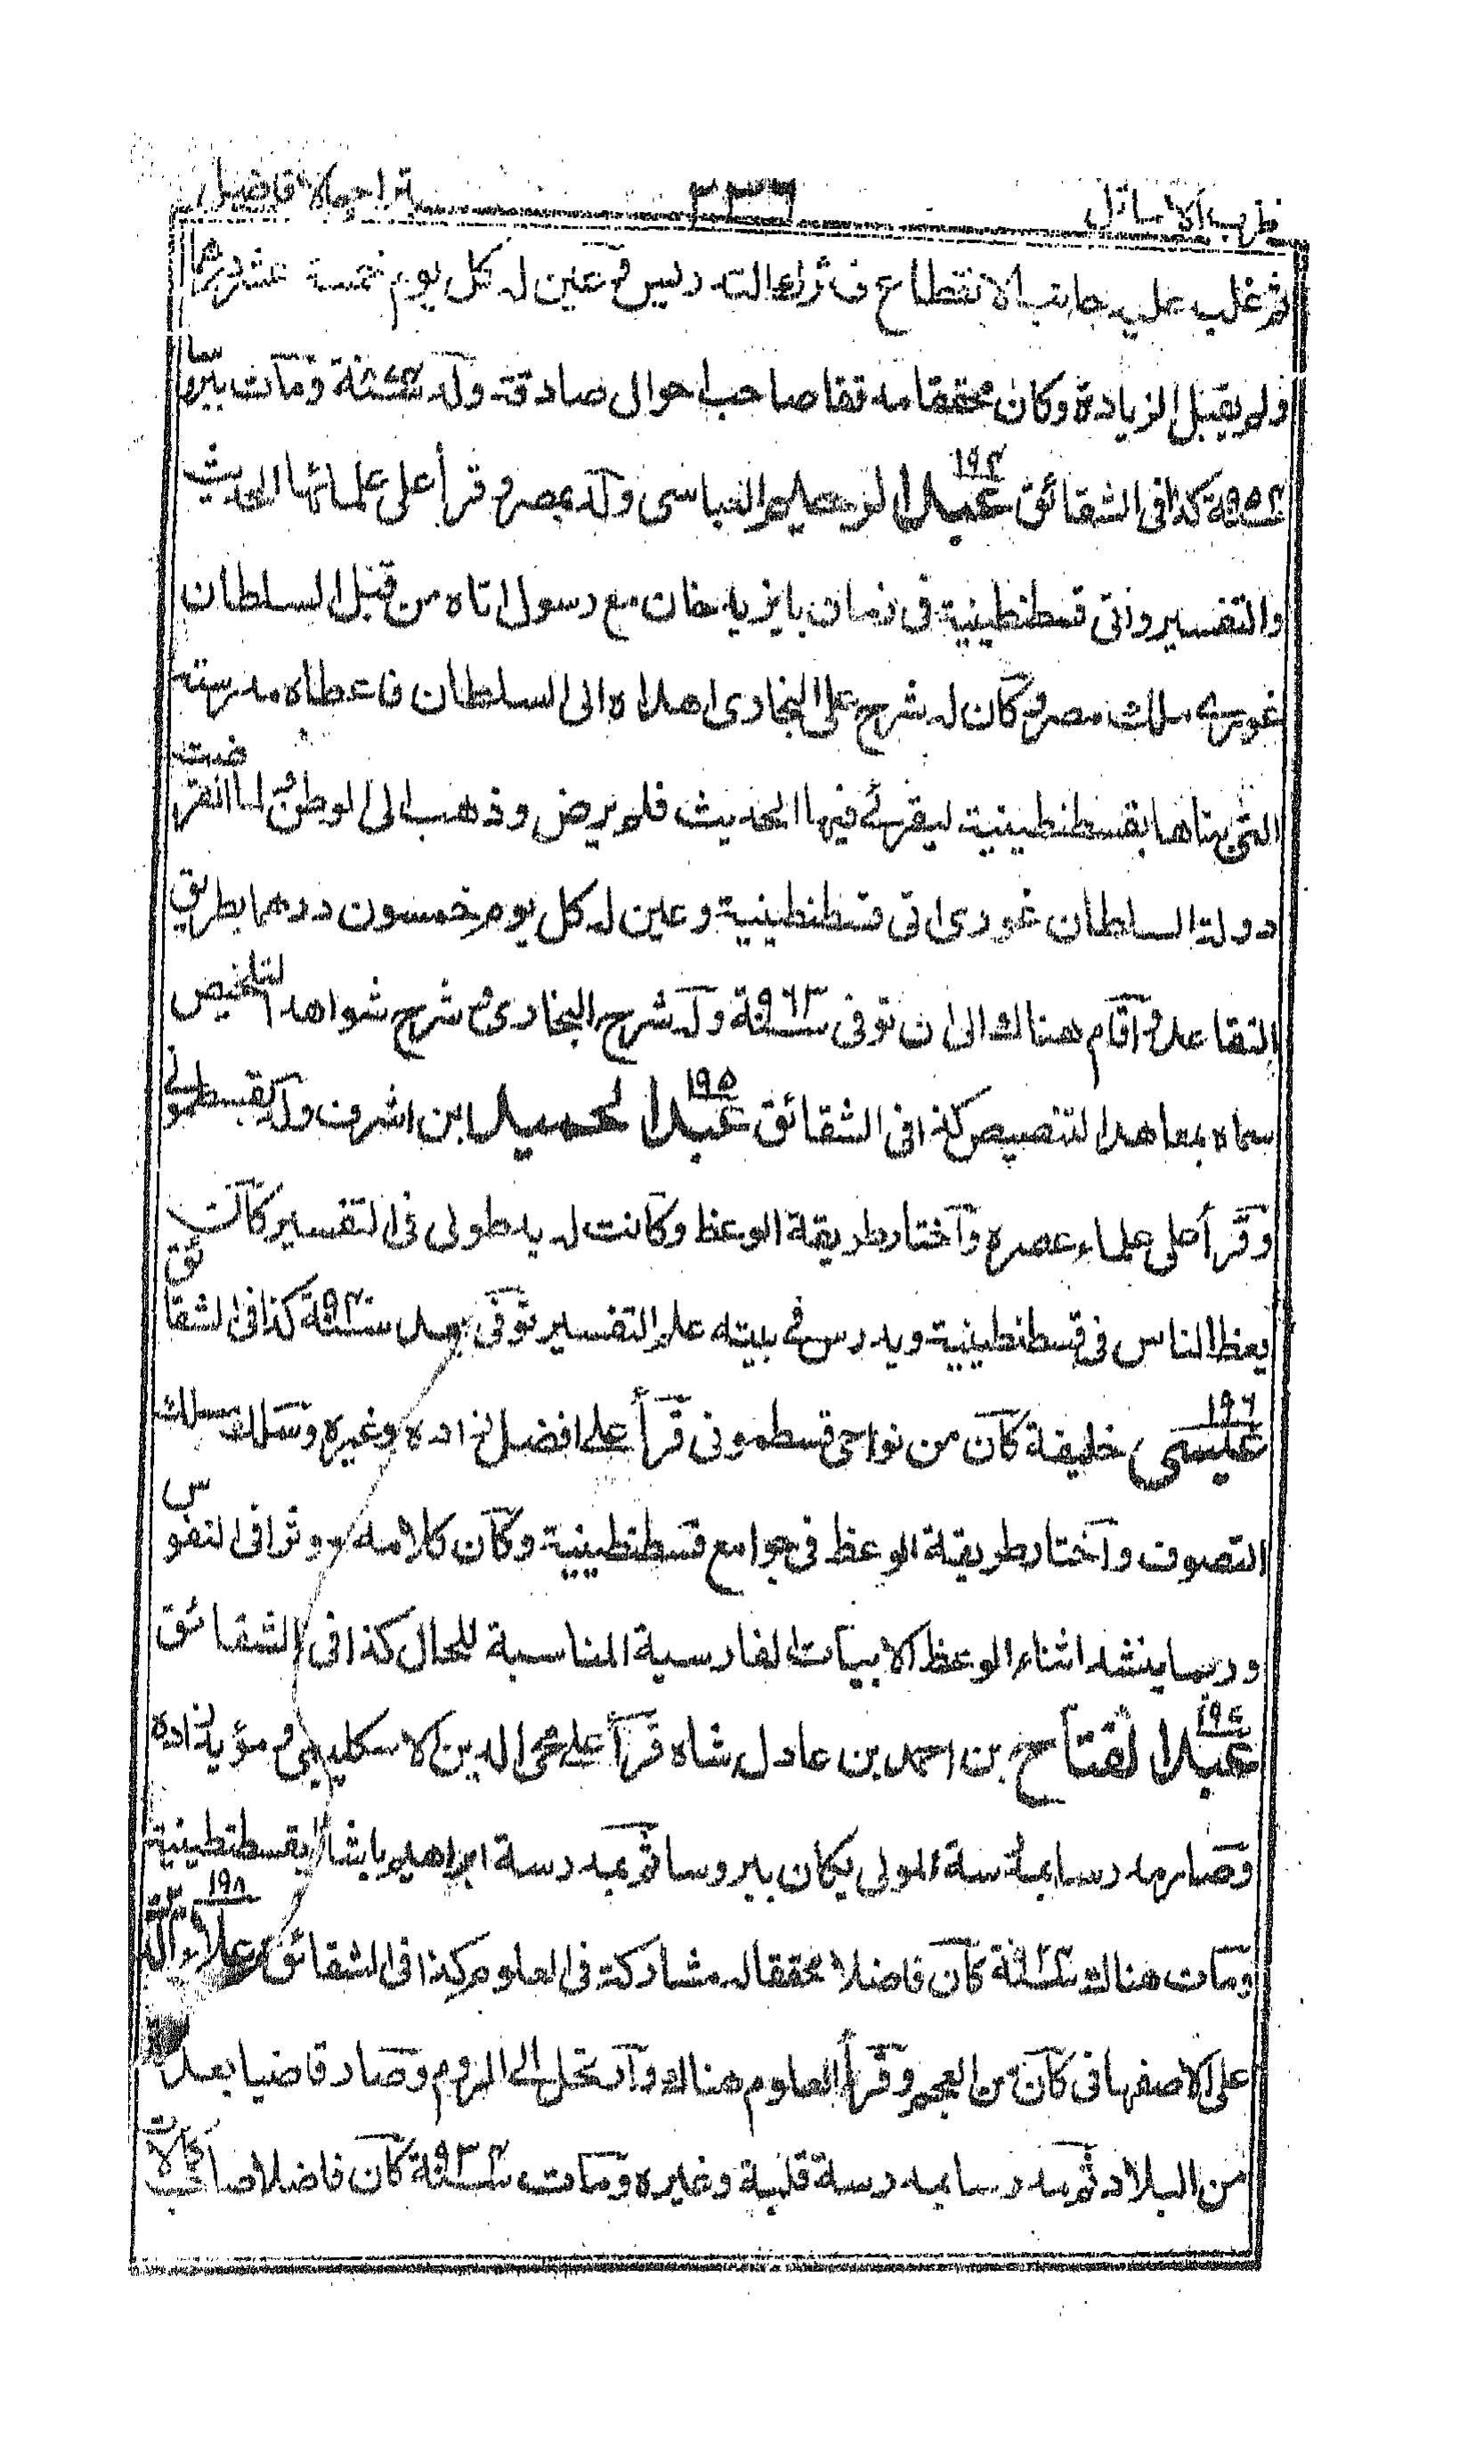 طرب الاماثل ٢٣٦ بتراجم الافاضل
ثم غلب عليه جانب الانقطاع فترك التدريس وعين له كل يوم خمسة عشر درهما
ولم يقبل الزيادة وكان محققا مدققا صاحب احوال صادقة وله ومات ببروسا
سنة ٩٥٢ كذا فى الشقائق ١٩٤ عبد الرحيم العباسى ولد بمصر وقرأ على علمائها الحديث
والتفسير واتى قسطنطينية فى زمان بايزيد خان مع رسول اتاه من قبل السلطان
غورى ملك مصر وكان له شرح على البخارى اهداه الى السلطان فاعطاه مدرسته
التى بناها بقسطنطينية ليقرئ فيها الحديث فلم يرض وذهب الى الوطن ثم لما انقرضت
دولة السلطان غورى اتى قسطنطينية وعين له كل يوم خمسون درهما بطريق
التقاعد واقام هناك الى ان توفى سنة ٩٦٣ وله شرح البخارى وشرح شواهد التلخيص
سماه بمعاهد التنصيص كذا فى الشقائق ١٩٥ عبد الحميد ابن اشرف ولد بقسطمونى
وقرأ على علماء عصره واختار طريقة الوعظ وكانت له يد طولى فى التفسير كانت
يعظ الناس فى قسطنطينية ويدرس فى بيته علم التفسير توفى بعد سنة ٩٢٠ كذا فى الشقائق
١٩٦ عيسى خليفة كان من نواحى قسطمونى قرأ على افضل زاده وغيره وسلك مسلك
التصوف واختار طريقة الوعظ فى جوامع قسطنطينية وكان كلامه موثرا فى النفوس
وربما ينشد اثناء الوعظ الابيات الفارسية المناسبة للحال كذا فى الشقائق
١٩٧ عبد الفتاح بن احمد بن عادل شاه قرأ على محى الدين الاسكليبى ومؤيد زاده
وصار مدرسا بمدرسة المولى يكان ببروسا ثم بمدرسة ابراهيم باشا بقسطنطينية
ومات هناك كان فاضلا محققا له مشاركة فى العلوم كذا فى الشقائق ١٩٨ علاء الدين
على الاصفهانى كان من العجم وقرأ العلوم هناك وارتحل الى الروم وصار قاضيا بعدة
من البلاد ثم مدرسا بمدرسة قلبة وغيره ومات سنة ٩٣٤ كان فاضلا صاحب كمالات